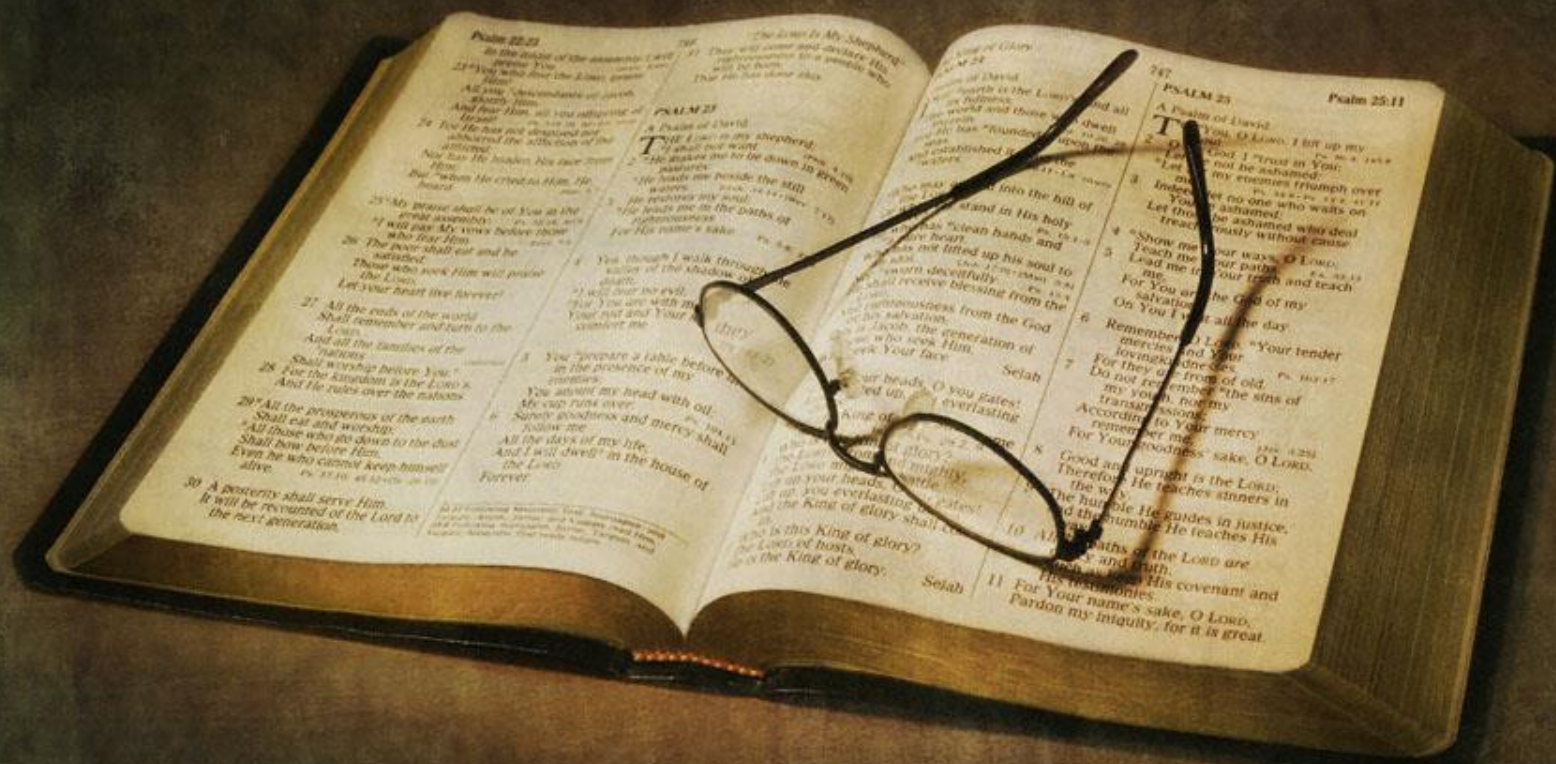 Psalm 22:23
praise You.
All you descendants of Jacob,
glorify Him,
24 For He has not despised nor
abhorred the affliction of the
afflicted;
Nor has He hidden His face from
Him;
But when He cried to Him, He
heard.
25 My praise shall be of You in the
great assembly;
I will pay My vows before those
who fear Him.
26 The poor shall eat and be
satisfied;
Those who seek Him will praise
the LORD.
Let your heart live forever!
27 All the ends of the world
Shall remember and turn to the
LORD,
And all the families of the
nations
Shall worship before You.
28 For the kingdom is the LORD's,
And He rules over the nations.
29 All the prosperous of the earth
Shall eat and worship;
All those who go down to the dust
Shall bow before Him,
Even he who cannot keep himself
alive.
30 A posterity shall serve Him.
It will be recounted of the Lord to
the next generation,
The LORD Is My Shepherd
will be born,
That He has done this.
PSALM 23
A Psalm of David.
THE LORD is my shepherd;
I shall not want.
2 He makes me to lie down in green
pastures;
He leads me beside the still
waters.
3 He restores my soul;
He leads me in the paths of
righteousness
For His name's sake.
4 Yea, though I walk through
valley of the shadow of
death,
I will fear no evil;
For You are with
Your rod and Your
comfort me.
5 You prepare a table before
in the presence of my
enemies;
You anoint my head with oil;
My cup runs over.
6 Surely goodness and mercy shall
follow me
All the days of my life;
And I will dwell in the house of
the LORD
Forever.
King of Glory
of David.
earth is the LORD's, and all
its fullness,
world and those dwell
therein.
He has founded upon the
seas,
And established it the
waters.
may into the hill of
stand in His holy
clean hands and
pure heart,
has not lifted up his soul to
sworn deceitfully.
shall receive blessing from the
righteousness from the God
his salvation.
is Jacob, the generation of
who seek Him,
seek Your face.
Selah
your heads, O you gates!
everlasting
King of
glory?
mighty,
up your heads,
up, you everlasting
and the King of glory shall
is this King of glory?
The LORD of hosts,
is the King of glory.
Selah
747
Psalm 25:11
PSALM 25
A Psalm of David.
You, O LORD, I lift up my
God, I trust in You;
not be ashamed;
my enemies triumph over
3 Indeed, let no one who waits on
You ashamed;
Let those be ashamed who deal
treacherously without cause.
4 Show me Your ways, O LORD;
Teach me Your paths.
5 Lead me in Your truth and teach
me,
For You are the God of my
salvation;
On You I wait all the day.
6 Remember, O LORD, Your tender
mercies and Your
lovingkindnesses,
For they are from of old.
7 Do not remember the sins of
my youth, nor my
transgressions;
According to Your mercy
remember me,
For Your goodness' sake, O LORD.
8 Good and upright is the LORD;
Therefore He teaches sinners in
the way.
The humble He guides in justice,
the humble He teaches His
10 paths of the LORD are
and truth,
His covenant and
His testimonies.
11 For Your name's sake, O LORD,
Pardon my iniquity, for it is great.